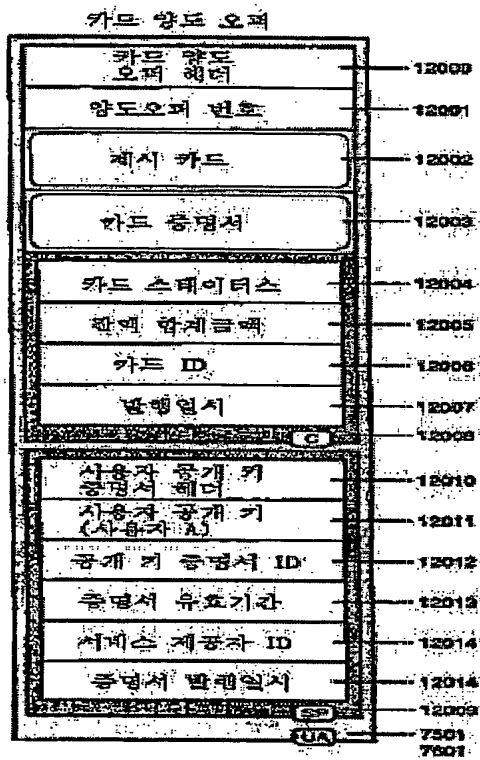 카드 양도 오퍼
카드 양도 12000
오퍼 헤더
양도오퍼 번호 12001
제시 카드 12002
카드 증명서 12003
카드 스테이터스 12004
잔액 합계금액 12005
카드 ID 12006
발행일시 12007
C 12008
사용자 공개 키 12010
증명서 헤더
사용자 공개 키 12011
(사용자 A)
공개 키 증명서 ID 12012
증명서 유효기간 12013
서비스 제공자 ID 12014
증명서 발행일시 12014
SP 12009
UA 7501
7601